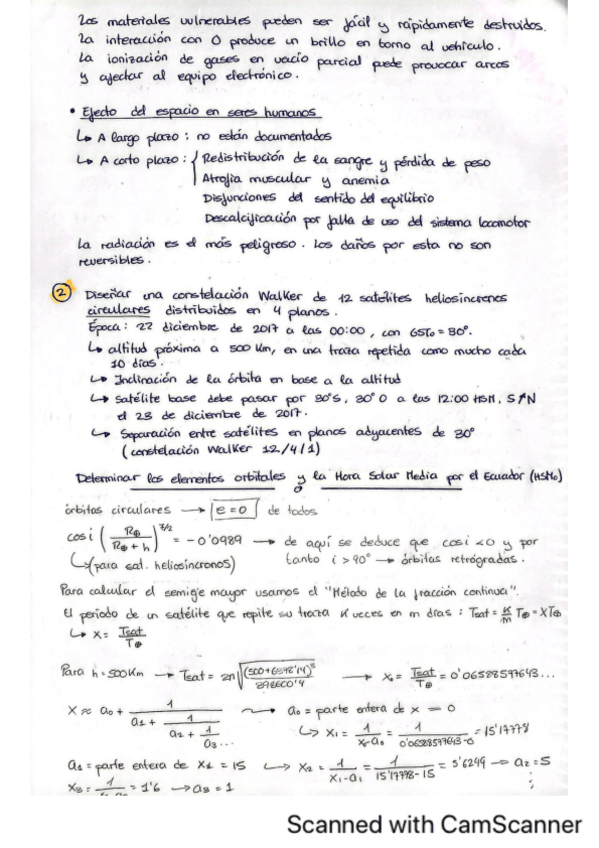 Los materiales vulnerables pueden ser fácil y rápidamente destruidos.
La interacción con O produce un brillo en torno al vehículo.
La ionización de gases en vacío parcial puede provocar arcos
y afectar al equipo electrónico.
• Efecto del espacio en seres humanos
↳ A largo plazo : no están documentados
↳ A corto plazo : Redistribución de la sangre y pérdida de peso
Atrofia muscular y anemia
Disfunciones del sentido del equilibrio
Descalcificación por falta de uso del sistema locomotor
La radiación es el más peligroso. Los daños por esta no son
reversibles.
② Diseñar una constelación Walker de 12 satélites heliosíncronos
circulares distribuidos en 4 planos.
Época : 22 diciembre de 2017 a las 00:00, con GST₀ = 90°.
↳ altitud próxima a 500 Km, en una traza repetida como mucho cada
10 días.
↳ Inclinación de la órbita en base a la altitud
↳ Satélite base debe pasar por 30°S, 30°O a las 12:00 HSM, S↑N
el 28 de diciembre de 2017.
↳ Separación entre satélites en planos adyacentes de 30°
(constelación Walker 12/4/1)
Determinar los elementos orbitales y la Hora Solar Media por el Ecuador (HSM₀)
órbitas circulares → e = 0 de todos
cos i (R⊕ / (R⊕ + h))^7/2 = -0'0989 → de aquí se deduce que cos i < 0 y por
(para sat. heliosíncronos) tanto i > 90° → órbitas retrógradas.
Para calcular el semieje mayor usamos el "Método de la fracción continua".
El periodo de un satélite que repite su traza K veces en m días : Tsat = K/m T⊕ = XT⊕
↳ X = Tsat / T⊕
Para h = 500 Km → Tsat = 2π √((500+6378'14)³ / 398600'4) → X₀ = Tsat / T⊕ = 0'06588597643...
X ≈ a₀ + 1 / (a₁ + 1 / (a₂ + 1 / a₃...)) → a₀ = parte entera de x = 0
↳ X₁ = 1 / (X-a₀) = 1 / (0'06588597643-0) = 15'17778
a₁ = parte entera de X₁ = 15 ↳ X₂ = 1 / (X₁-a₁) = 1 / (15'17778-15) = 5'6249 → a₂ = 5
X₃ = 1 = 1'6 → a₃ = 1
Scanned with CamScanner